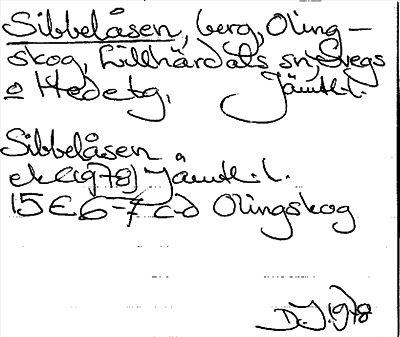 Sibbelåsen, berg, Oling-
skog, Lillhärdals sn, Svegs
o Hede tg, Jämtl. l.
Sibbelåsen
ek (1978) Jämtl. l.
15E 6-7 c-d Olingskog
D.J. 1978